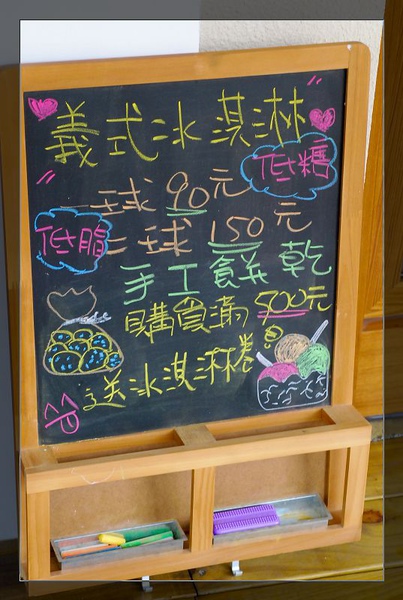 義式冰淇淋
低糖
一球 90元
低脂
二球 150元
手工餅乾
購買滿 500元
送冰淇淋卷